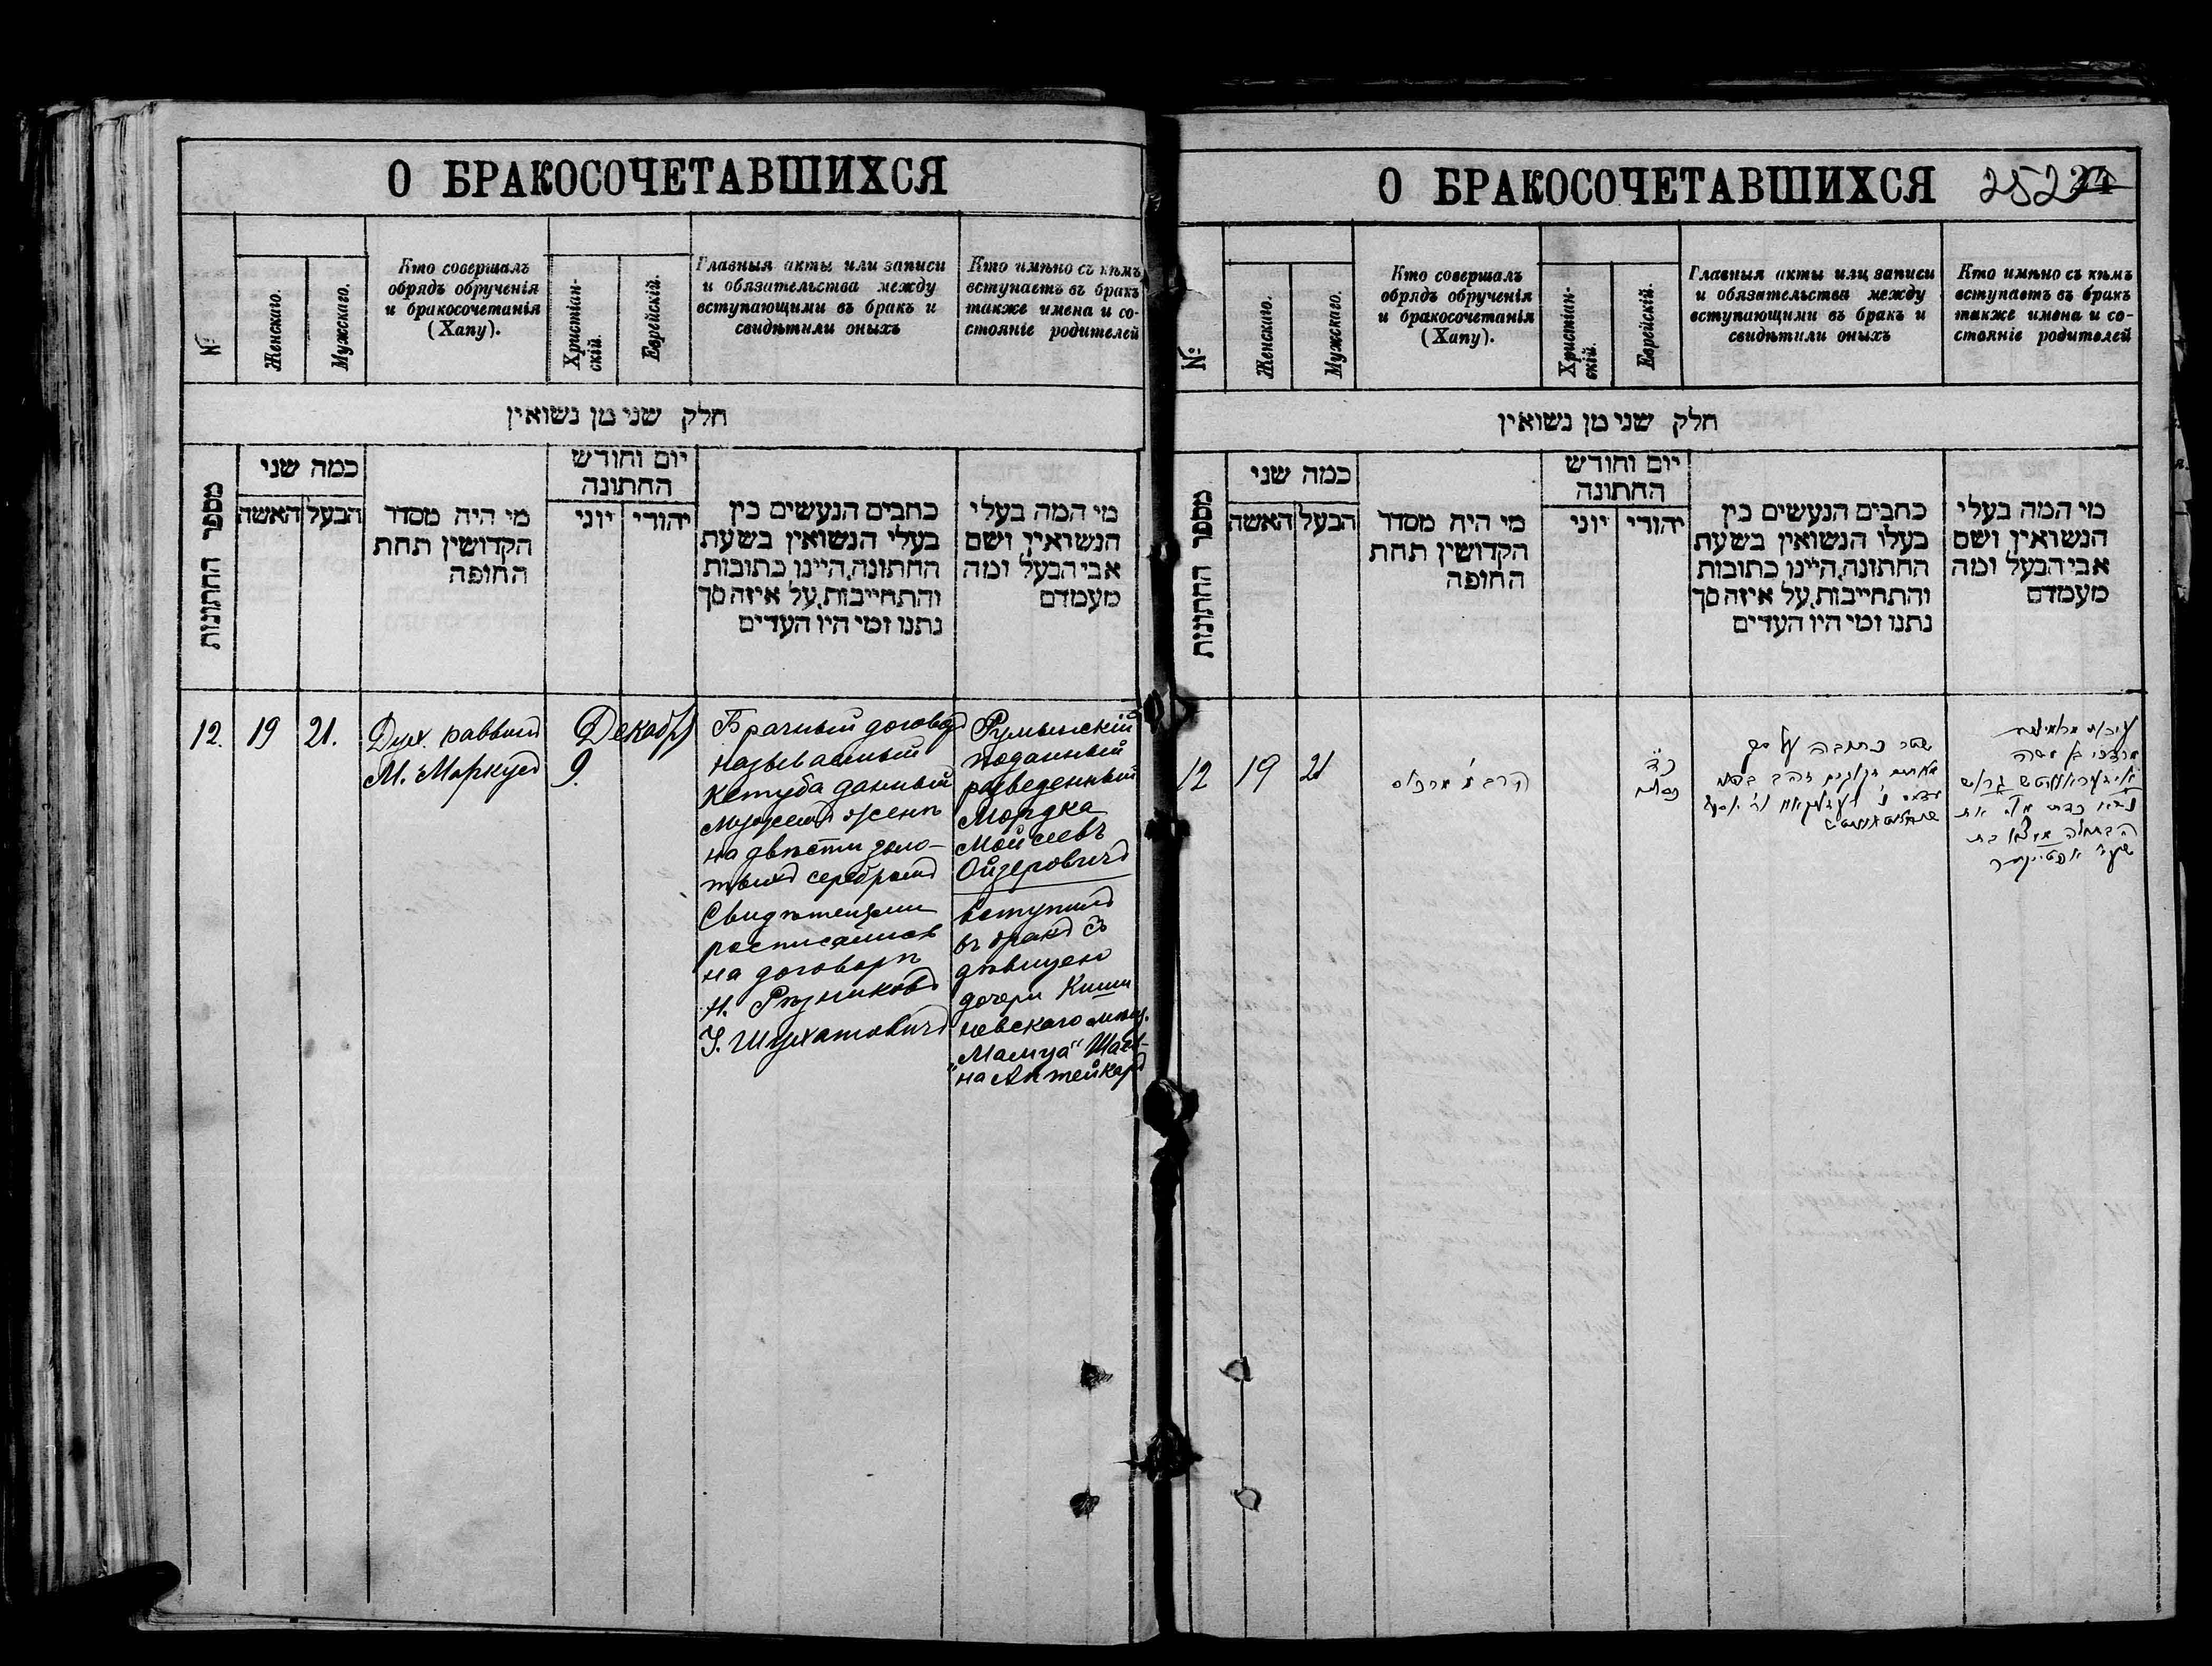 О БРАКОСОЧЕТАВШИХСЯ
№
Женскаго.
Мужскаго.
Кто совершалъ
обрядъ обрученія
и бракосочетанія
(Хапу).
Христіан-
скій.
Еврейскій.
Главныя акты или записи
и обязательства между
вступающими въ бракъ и
свидѣтили оныхъ
Кто имѣно съ кѣмъ
вступаетъ въ бракъ
также имена и со-
стояніе родителей
חלק שני מן נשואין
מספר החתונות
כמה שני
האשה
הבעל
מי היה מסדר
הקדושין תחת
החופה
יום וחודש
החתונה
יוני
יהודי
כתבים הנעשים בין
בעלי הנשואין בשעת
החתונה, היינו כתובות
והתחייבות, על איזה סך
נתנו ומי היו העדים
מי המה בעלי
הנשואין ושם
אבי הבעל ומה
מעמדם
12.
19
21.
Дух. раввинъ
М. Маркусъ
Декабр
9.
Брачный договоръ
называемый
Кетуба данный
мужемъ женѣ
на двѣсти золо-
тыхъ серебромъ
Свидѣтелями
росписались
на договорѣ
Н. Рѣзниковъ
Румынскій
поданный
разведенный
Мордка
Мойсеевъ
Ойзеровичъ
вступилъ
въ бракъ съ
дѣвицею
дочери Киши
невскаго мѣщ.
"Малца" Шаи-
на Аптейкаръ
О БРАКОСОЧЕТАВШИХСЯ
252
№
Женскаго.
Мужскаго.
Кто совершалъ
обрядъ обрученія
и бракосочетанія
(Хапу).
Христіан-
скій.
Еврейскій.
Главныя акты или записи
и обязательства между
вступающими въ бракъ и
свидѣтили оныхъ
Кто имѣно съ кѣмъ
вступаетъ въ бракъ
также имена и со-
стояніе родителей
חלק שני מן נשואין
מספר החתונות
כמה שני
האשה
הבעל
מי היה מסדר
הקדושין תחת
החופה
יום וחודש
החתונה
יוני
יהודי
כתבים הנעשים בין
בעלי הנשואין בשעת
החתונה, היינו כתובות
והתחייבות, על איזה סך
נתנו ומי היו העדים
מי המה בעלי
הנשואין ושם
אבי הבעל ומה
מעמדם
12
19
21
הרב מ' מרכוס
כ"ד
כסלו
שטר כתובה על סך
מרדכי בן משה
גרוש
הבתולה מאלצא בת